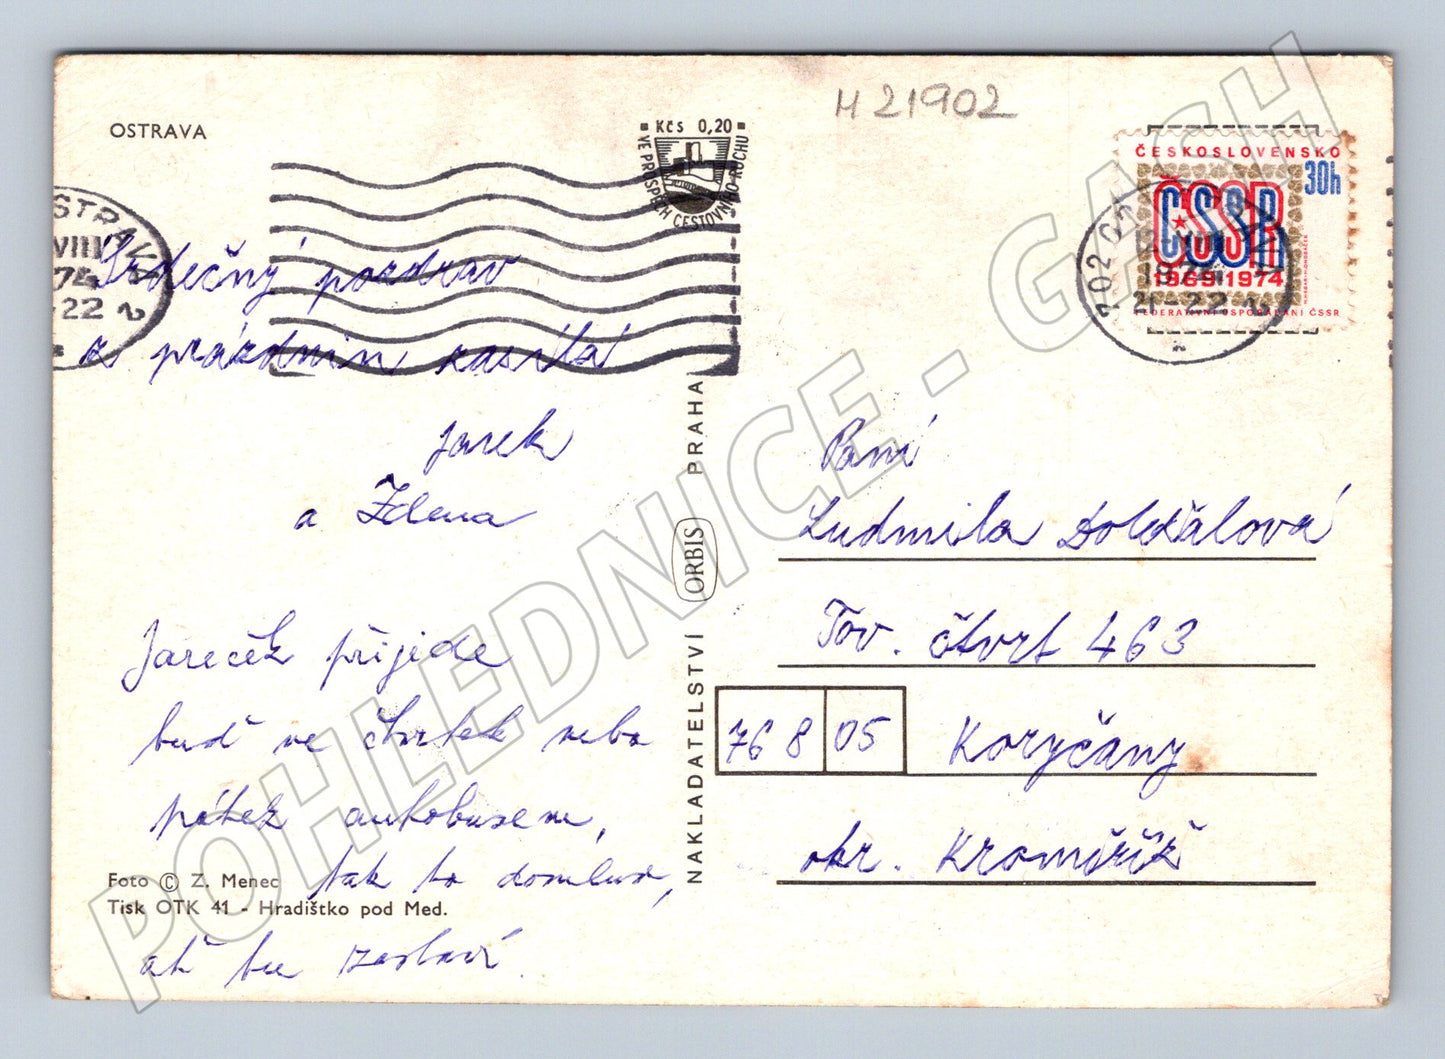 OSTRAVA
H 21902
Kčs 0,20
VE PROSPĚCH CESTOVNÍHO RUCHU
ČESKOSLOVENSKO
30h
ČSSR
1969-1974
FEDERATIVNÍ USPOŘÁDÁNÍ ČSSR
702
21-22
STRAV
VIII
74
22
Srdečný pozdrav
z prázdnin zasílá
Jarek
a Zdena
Jareček přijede
buď ve čtvrtek nebo
pátek autobusem,
tak to domluv,
ať tu zastaví.
Foto © Z. Menec
Tisk OTK 41 - Hradištko pod Med.
NAKLADATELSTVÍ ORBIS PRAHA
Paní
Ludmila Doležalová
Tov. čtvrt 463
768 05 Koryčany
okr. Kroměříž
POHLEDNICE - GASH